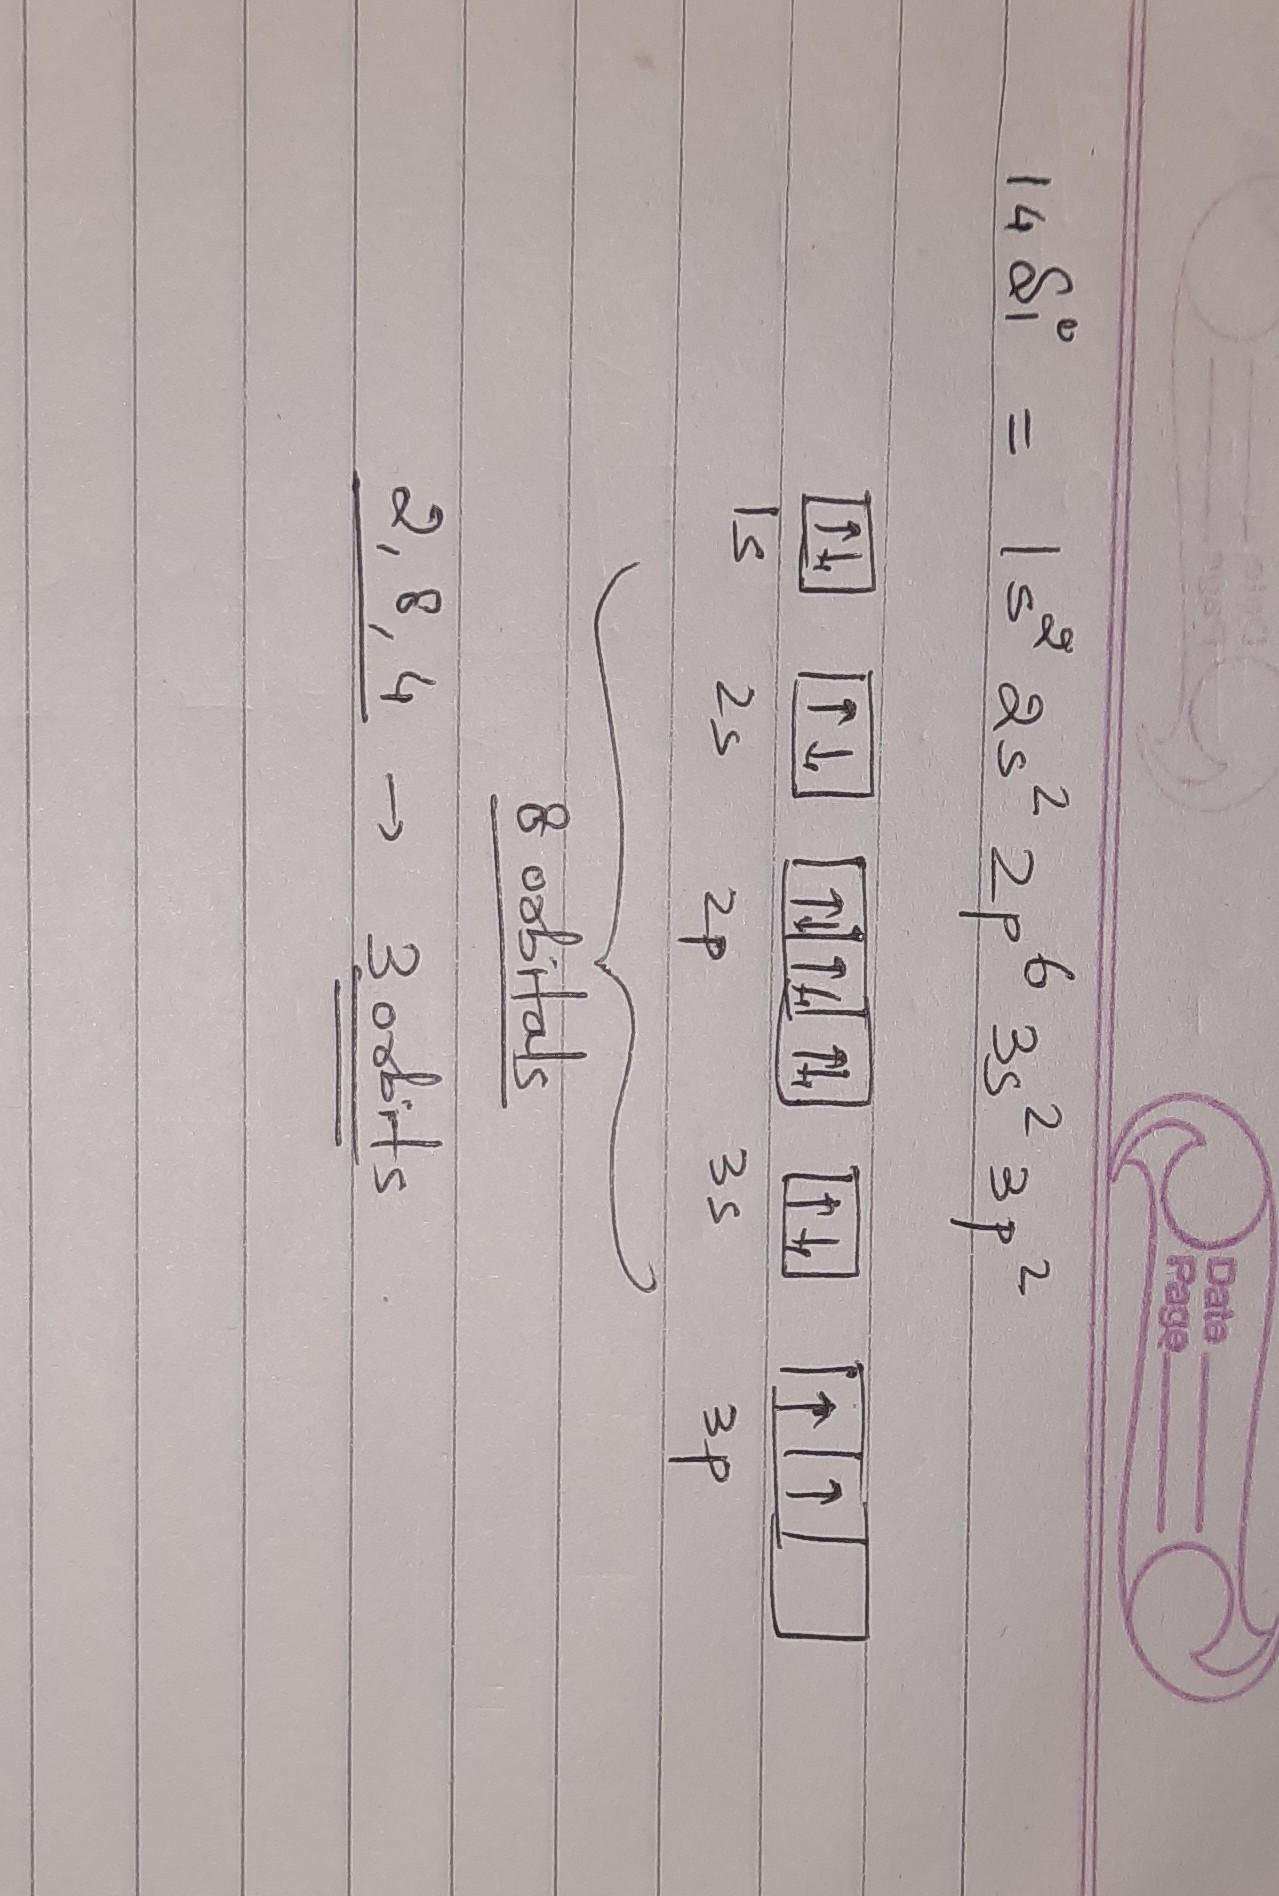 Date
Page
14Si = 1s² 2s² 2p⁶ 3s² 3p²
↑↓ ↑↓ ↑↓ ↑↓ ↑↓ ↑↓ ↑ ↑
1s 2s 2p 3s 3p
8 orbitals
2, 8, 4 → 3 orbits